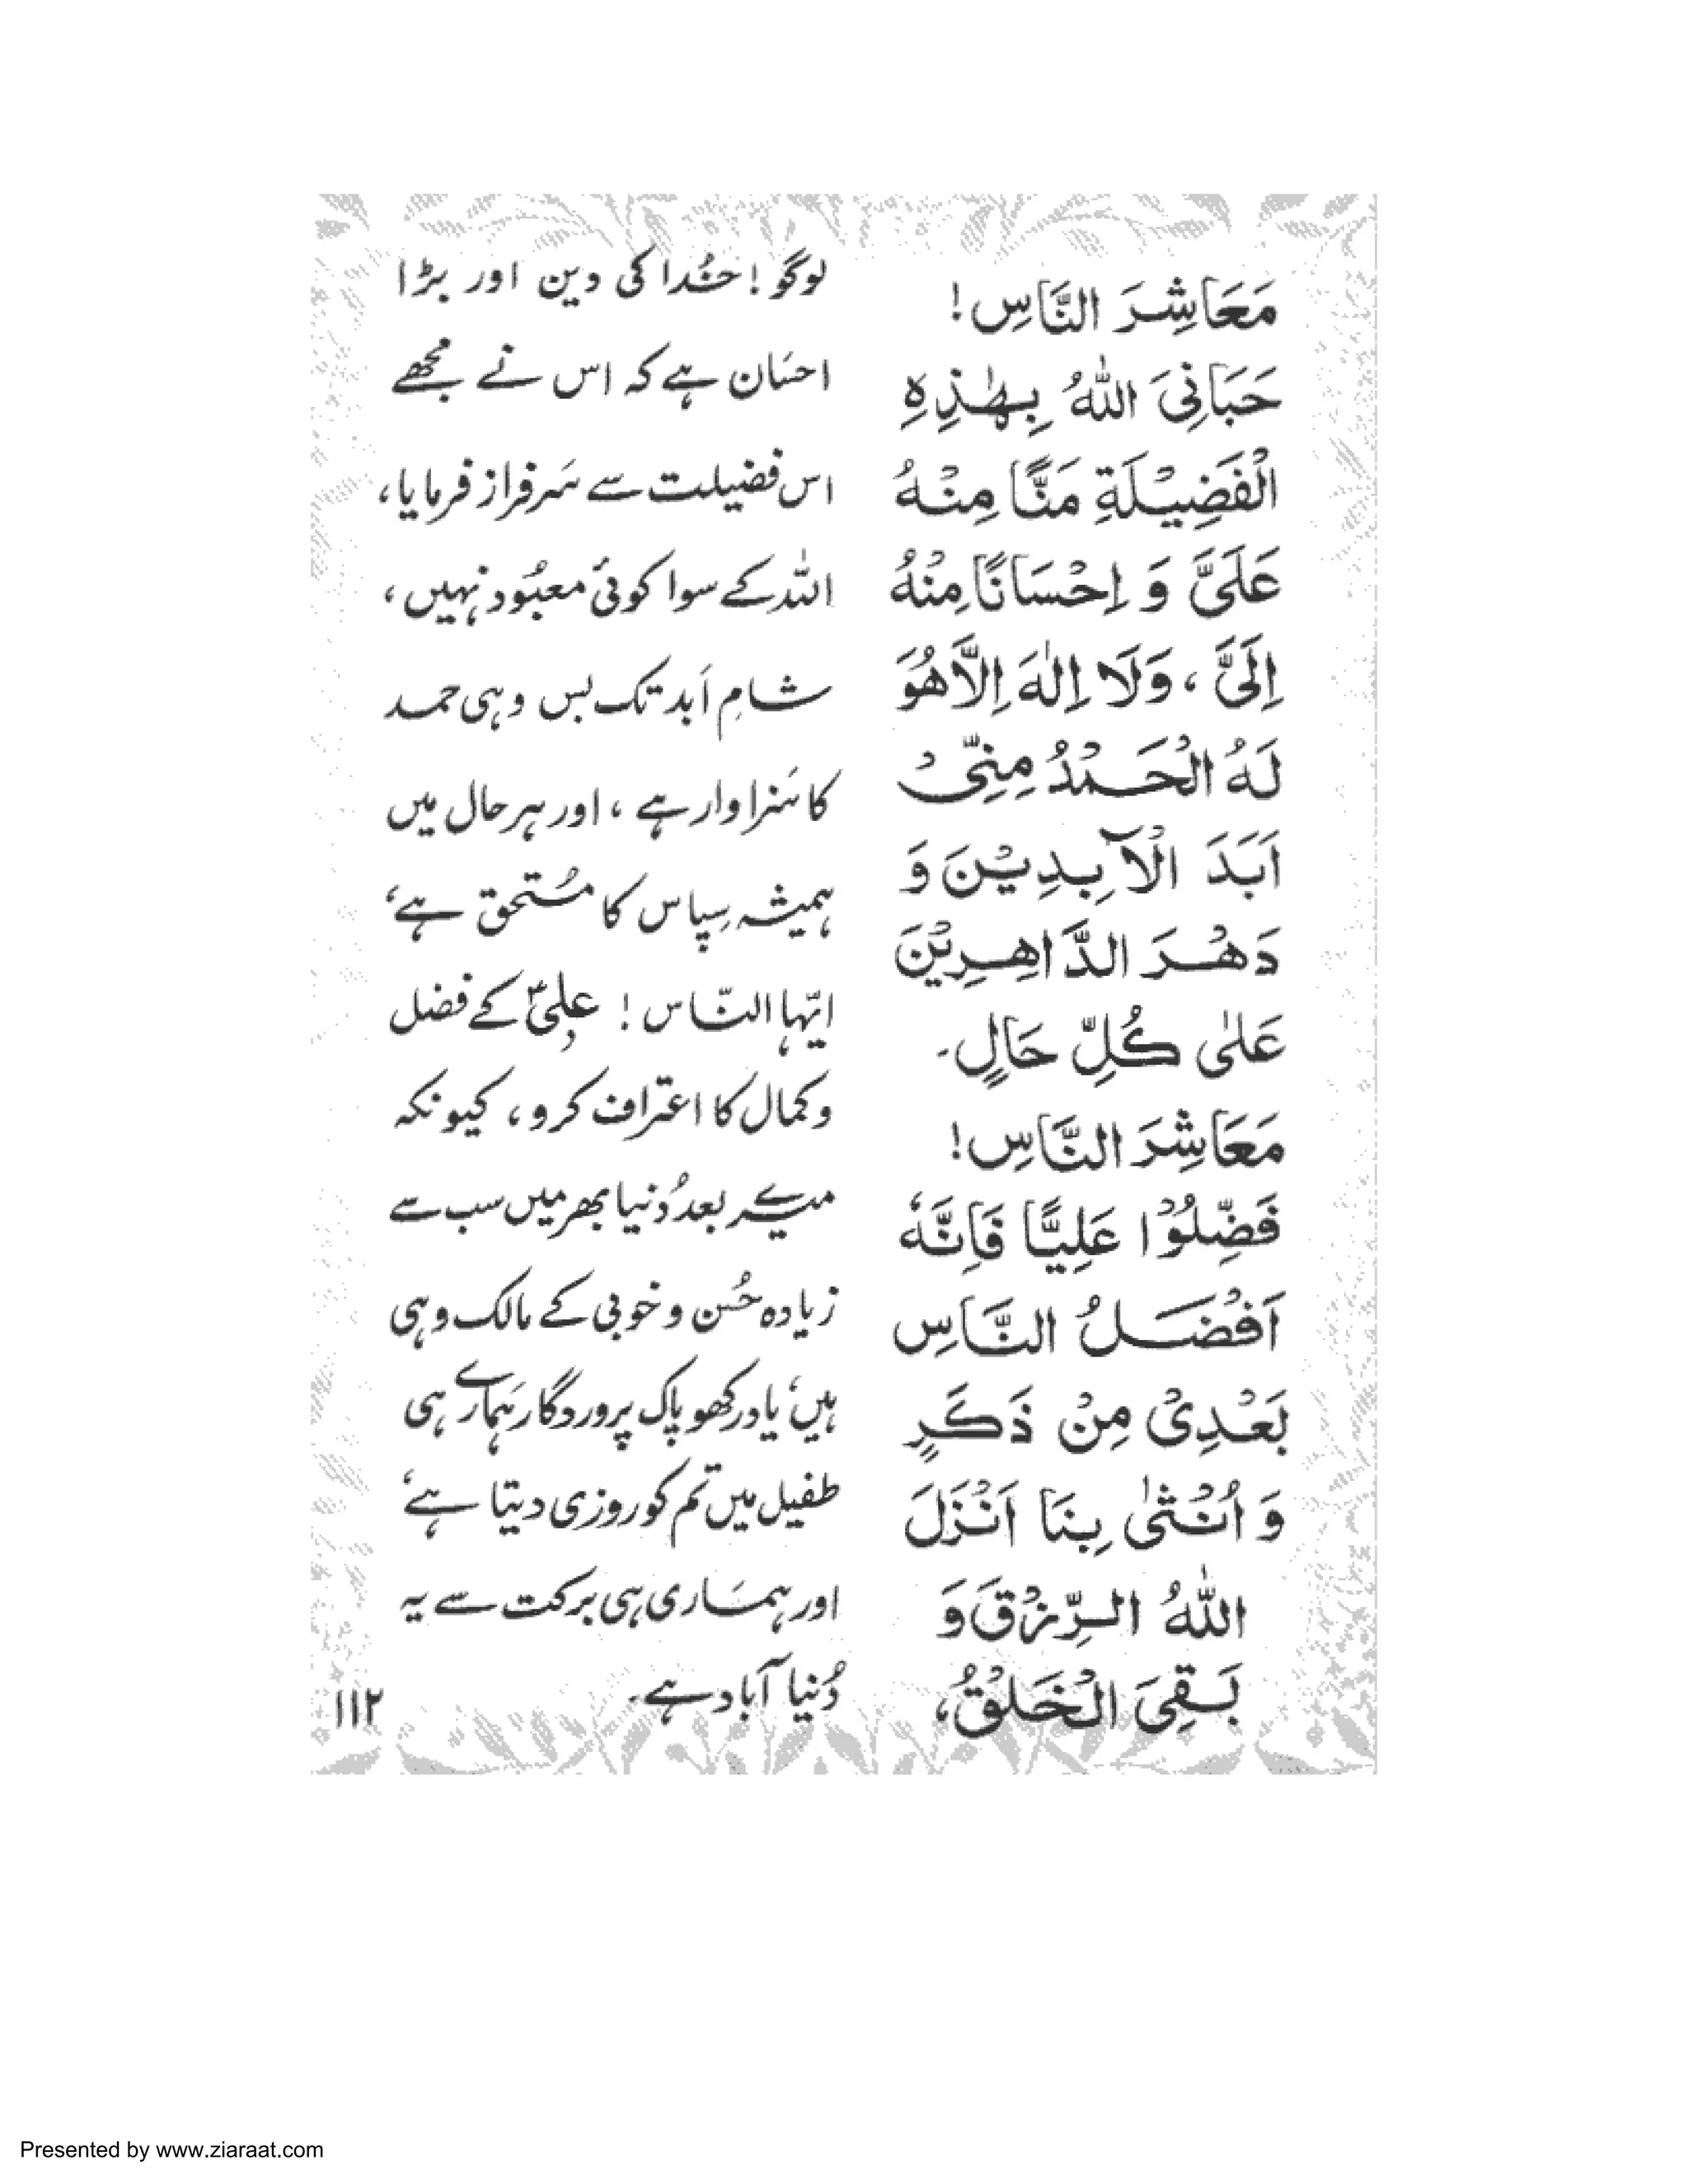 مَعَاشِرَ النَّاسِ!
حَبَانِیَ اللّٰهُ بِهٰذِهِ
الْفَضِیْلَةِ مَنًّا مِنْهُ
عَلَیَّ وَ اِحْسَانًا مِنْهُ
اِلَیَّ، وَلَا اِلٰهَ اِلَّا هُوَ
لَهُ الْحَمْدُ مِنِّیْ
اَبَدَ الْاٰبِدِیْنَ وَ
دَهْرَ الدَّاهِرِیْنَ
عَلٰی کُلِّ حَالٍ۔
مَعَاشِرَ النَّاسِ!
فَضِّلُوْا عَلِیًّا فَاِنَّهٗ
اَفْضَلُ النَّاسِ
بَعْدِیْ مِنْ ذَکَرٍ
وَ اُنْثٰی بِنَا اَنْزَلَ
اللّٰهُ الرِّزْقَ وَ
بَقِیَ الْخَلْقُ،
لوگو! خُدا کی دین اور بڑا
احسَان ہے کہ اس نے مجھے
اس فضیلت سے سَرفراز فرمایا،
اللہ کے سوا کوئی معبُود نہیں،
شامِ اَبد تک بس وہی حمد
کا سَزاوار ہے، اور ہر حال میں
ہمیشہ سِپاس کا مُستحق ہے،
ایّہا النّاس! علیؑ کے فضل
و کمال کا اعتراف کرو، کیونکہ
میرے بعد دُنیا بھر میں سب سے
زیادہ حُسن و خوبی کے مالک وہی
ہیں، یاد رکھو پاک پروردگار ہمارے ہی
طفیل میں تم کو روزی دیتا ہے،
اور ہمَاری ہی برکت سے یہ
دُنیا آباد ہے۔
۱۱۲
Presented by www.ziaraat.com